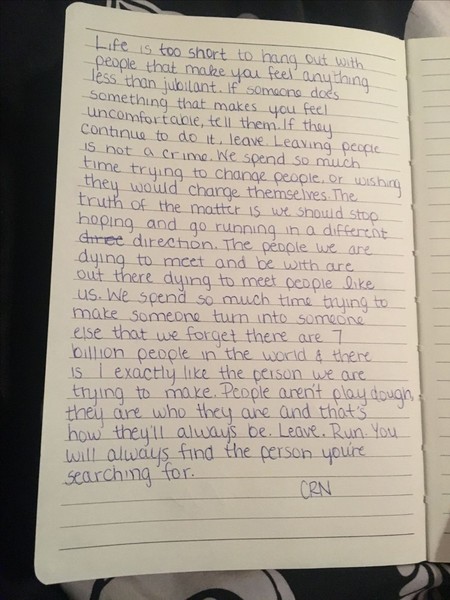 Life is too short to hang out with
people that make you feel anything
less than jubilant. If someone does
something that makes you feel
uncomfortable, tell them. If they
continue to do it, leave. Leaving people
is not a crime. We spend so much
time trying to change people, or wishing
they would change themselves. The
truth of the matter is we should stop
hoping and go running in a different
direc direction. The people we are
dying to meet and be with are
out there dying to meet people like
us. We spend so much time trying to
make someone turn into someone
else that we forget there are 7
billion people in the world & there
is 1 exactly like the person we are
trying to make. People aren't play dough,
they are who they are and that's
how they'll always be. Leave. Run. You
will always find the person you're
searching for.
CRN